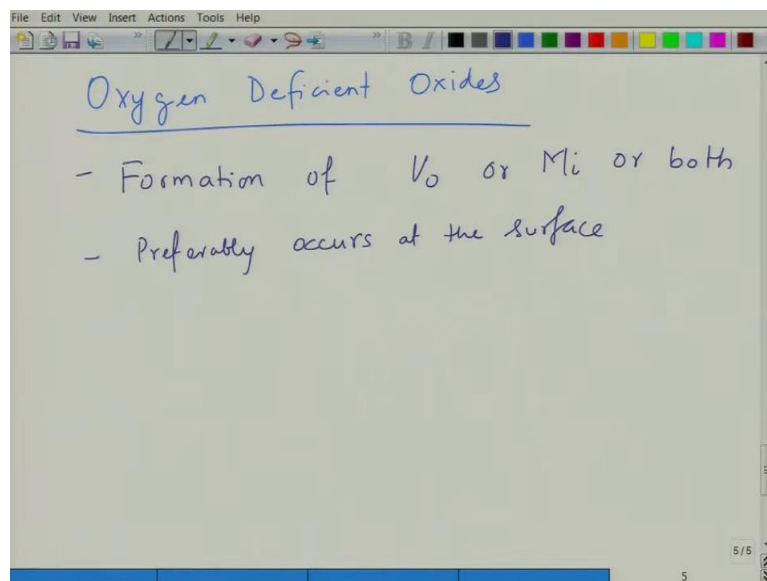 File Edit View Insert Actions Tools Help
B I
Oxygen Deficient Oxides
- Formation of Vo or Mi or both
- Preferably occurs at the surface
5/5
5